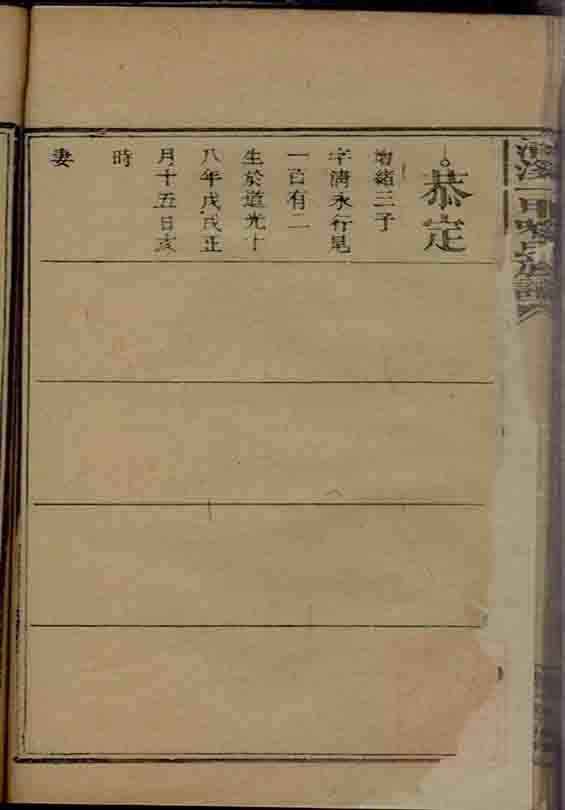 恭定
增緒三子
字清永行尾
一百有二
生於道光十
八年戊戌正
月十五日亥
時
妻